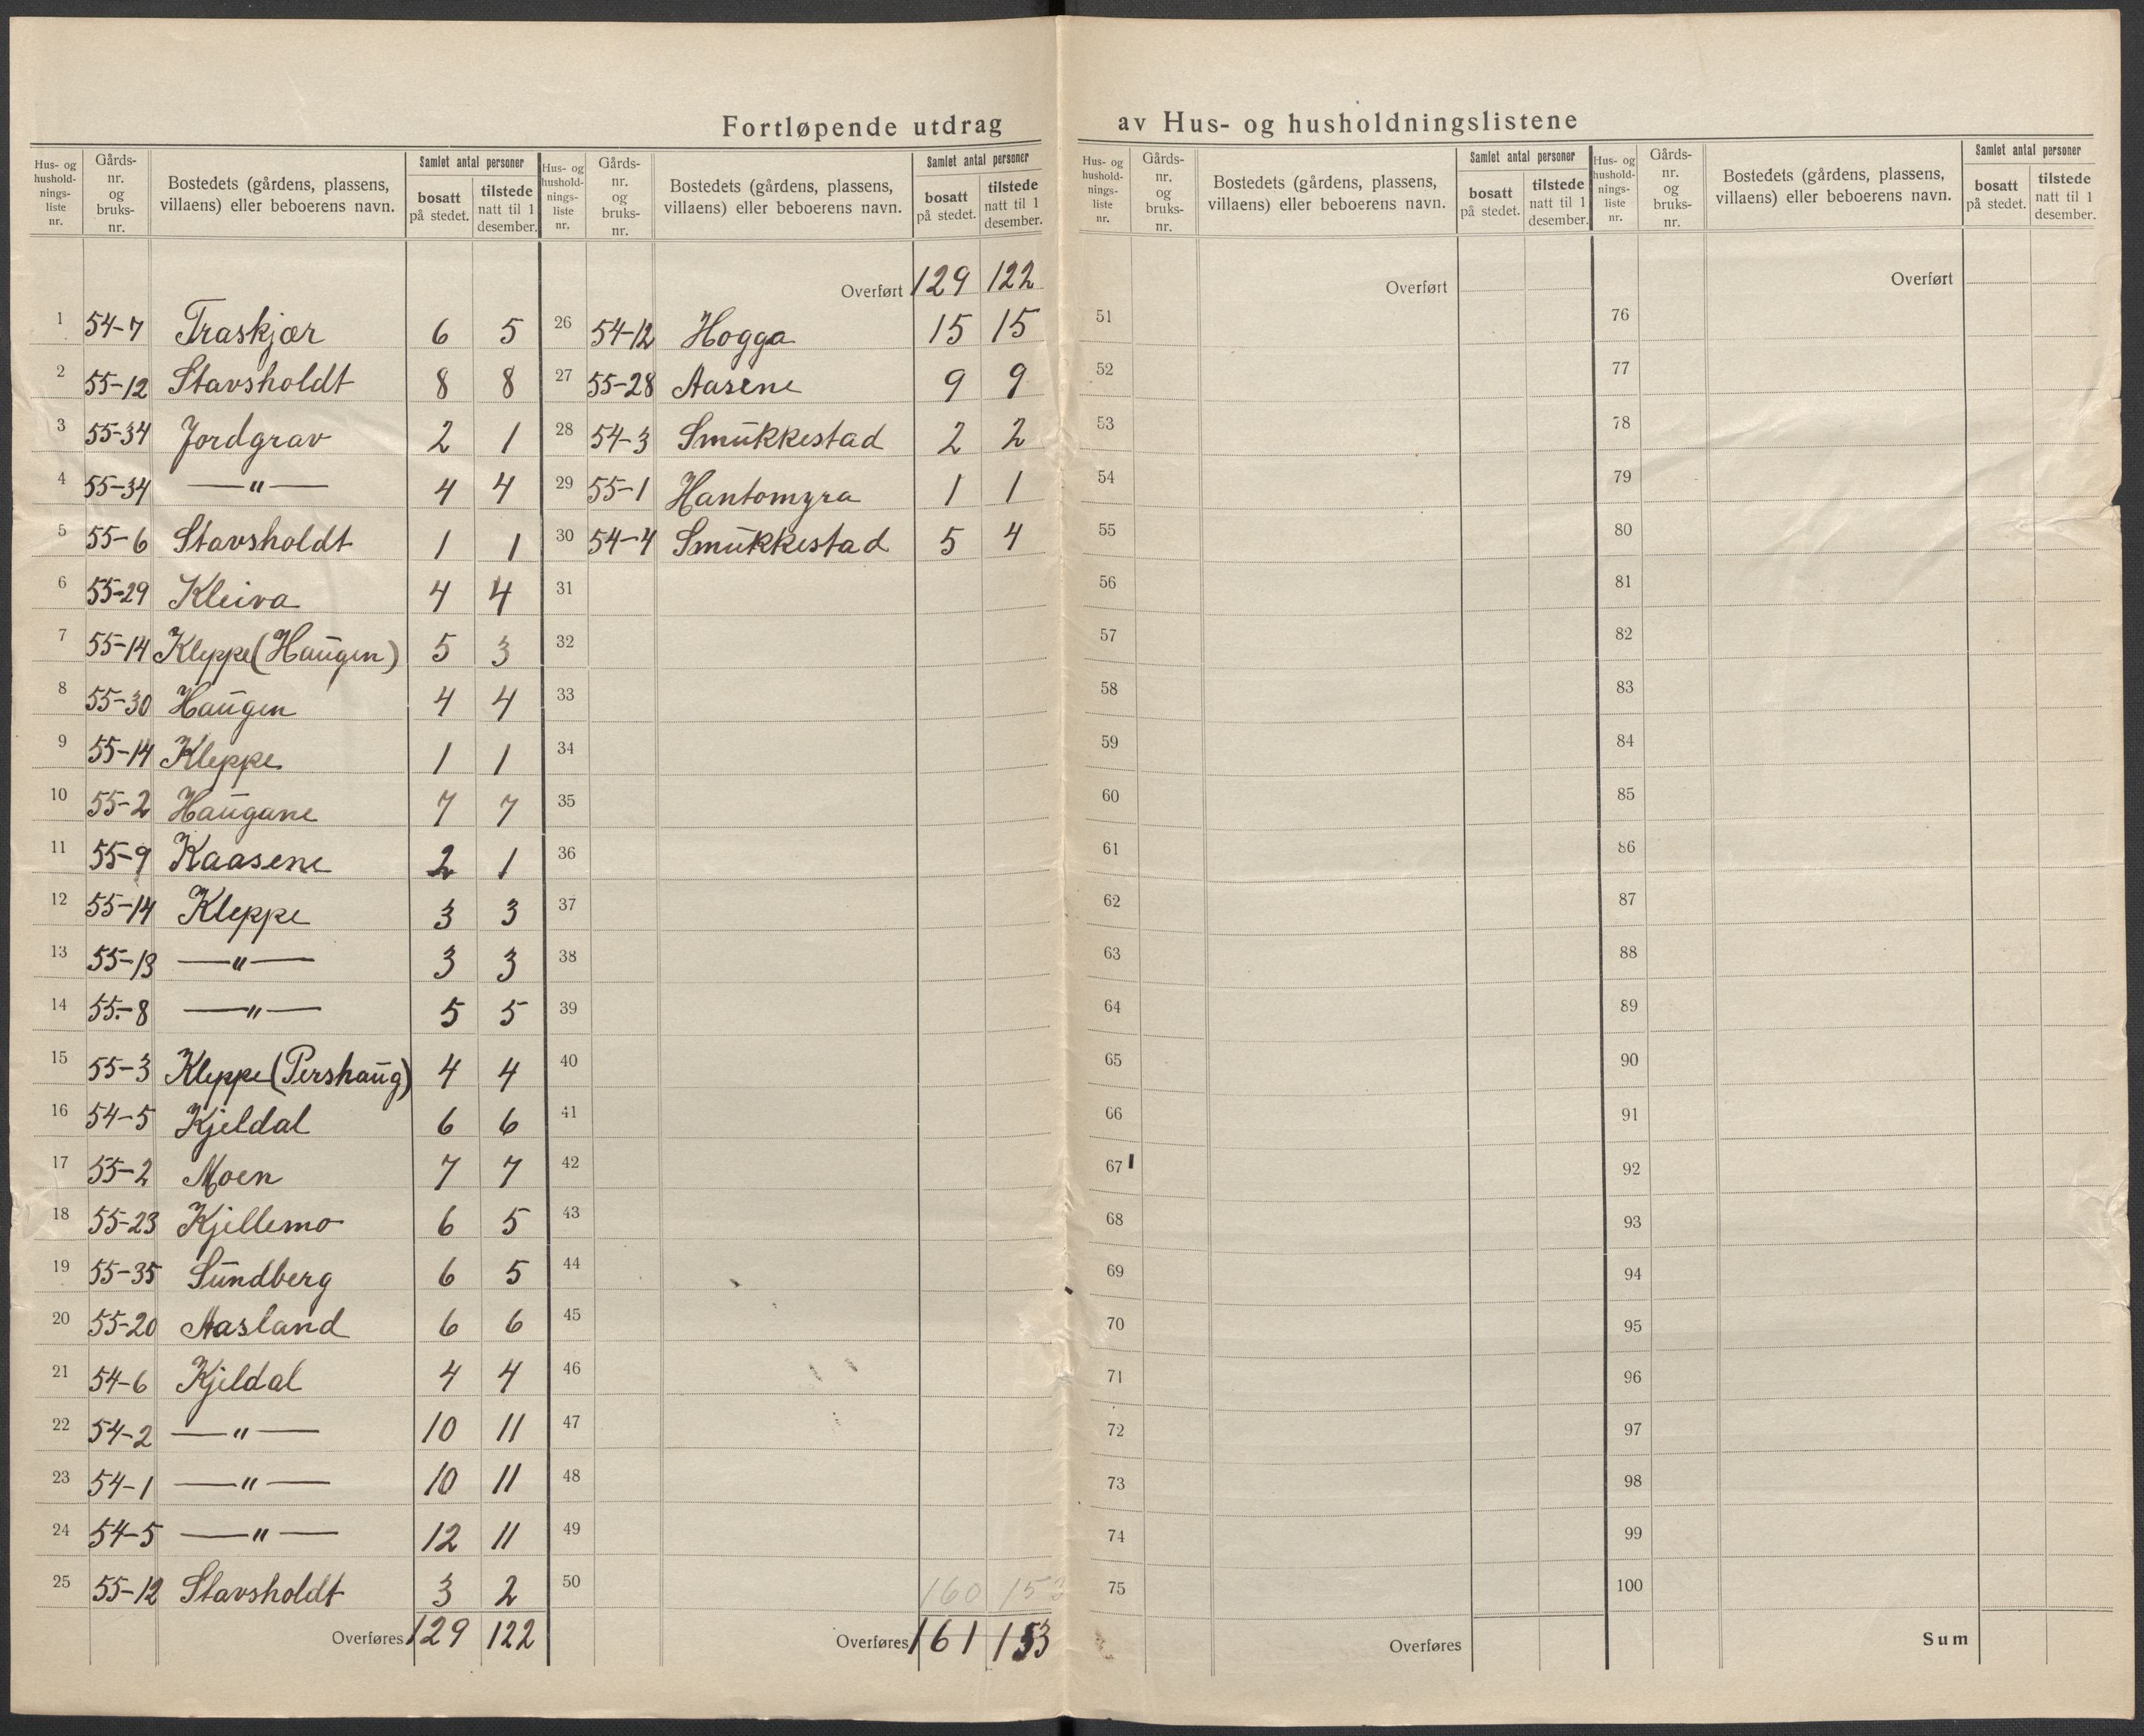 Fortløpende utdrag av Hus- og husholdningslistene
Hus- og hushold-nings-liste nr. | Gårds-nr. og bruks-nr. | Bostedets (gårdens, plassens, villaens) eller beboerens navn. | Samlet antal personer | bosatt på stedet. | tilstede natt til 1 desember.
1 54-7 Traskjær 6 5
2 55-12 Stavsholdt 8 8
3 55-34 Jordgrav 2 1
4 55-34 —"— 4 4
5 55-6 Stavsholdt 1 1
6 55-29 Kleiva 4 4
7 55-14 Kleppe (Haugen) 5 3
8 55-30 Haugen 4 4
9 55-14 Kleppe 1 1
10 55-2 Haugane 7 7
11 55-9 Kaasene 2 1
12 55-14 Kleppe 3 3
13 55-13 —"— 3 3
14 55-8 —"— 5 5
15 55-3 Kleppe (Pershaug) 4 4
16 54-5 Kjeldal 6 6
17 55-2 Moen 7 7
18 55-23 Kjellemo 6 5
19 55-35 Sundberg 6 5
20 55-20 Aasland 6 6
21 54-6 Kjeldal 4 4
22 54-2 —"— 10 11
23 54-1 —"— 10 11
24 54-5 —"— 12 11
25 55-12 Stavsholdt 3 2
Overføres 129 122
Hus- og hushold-nings-liste nr. | Gårds-nr. og bruks-nr. | Bostedets (gårdens, plassens, villaens) eller beboerens navn. | Samlet antal personer | bosatt på stedet. | tilstede natt til 1 desember.
Overført 129 122
26 54-12 Hogga 15 15
27 55-28 Aasene 9 9
28 54-3 Smukkestad 2 2
29 55-1 Hantomyra 1 1
30 54-4 Smukkestad 5 4
31
32
33
34
35
36
37
38
39
40
41
42
43
44
45
46
47
48
49
50
160 153
Overføres 161 153
Hus- og hushold-nings-liste nr. | Gårds-nr. og bruks-nr. | Bostedets (gårdens, plassens, villaens) eller beboerens navn. | Samlet antal personer | bosatt på stedet. | tilstede natt til 1 desember.
Overført
51
52
53
54
55
56
57
58
59
60
61
62
63
64
65
66
67
68
69
70
71
72
73
74
75
Overføres
Hus- og hushold-nings-liste nr. | Gårds-nr. og bruks-nr. | Bostedets (gårdens, plassens, villaens) eller beboerens navn. | Samlet antal personer | bosatt på stedet. | tilstede natt til 1 desember.
Overført
76
77
78
79
80
81
82
83
84
85
86
87
88
89
90
91
92
93
94
95
96
97
98
99
100
Sum